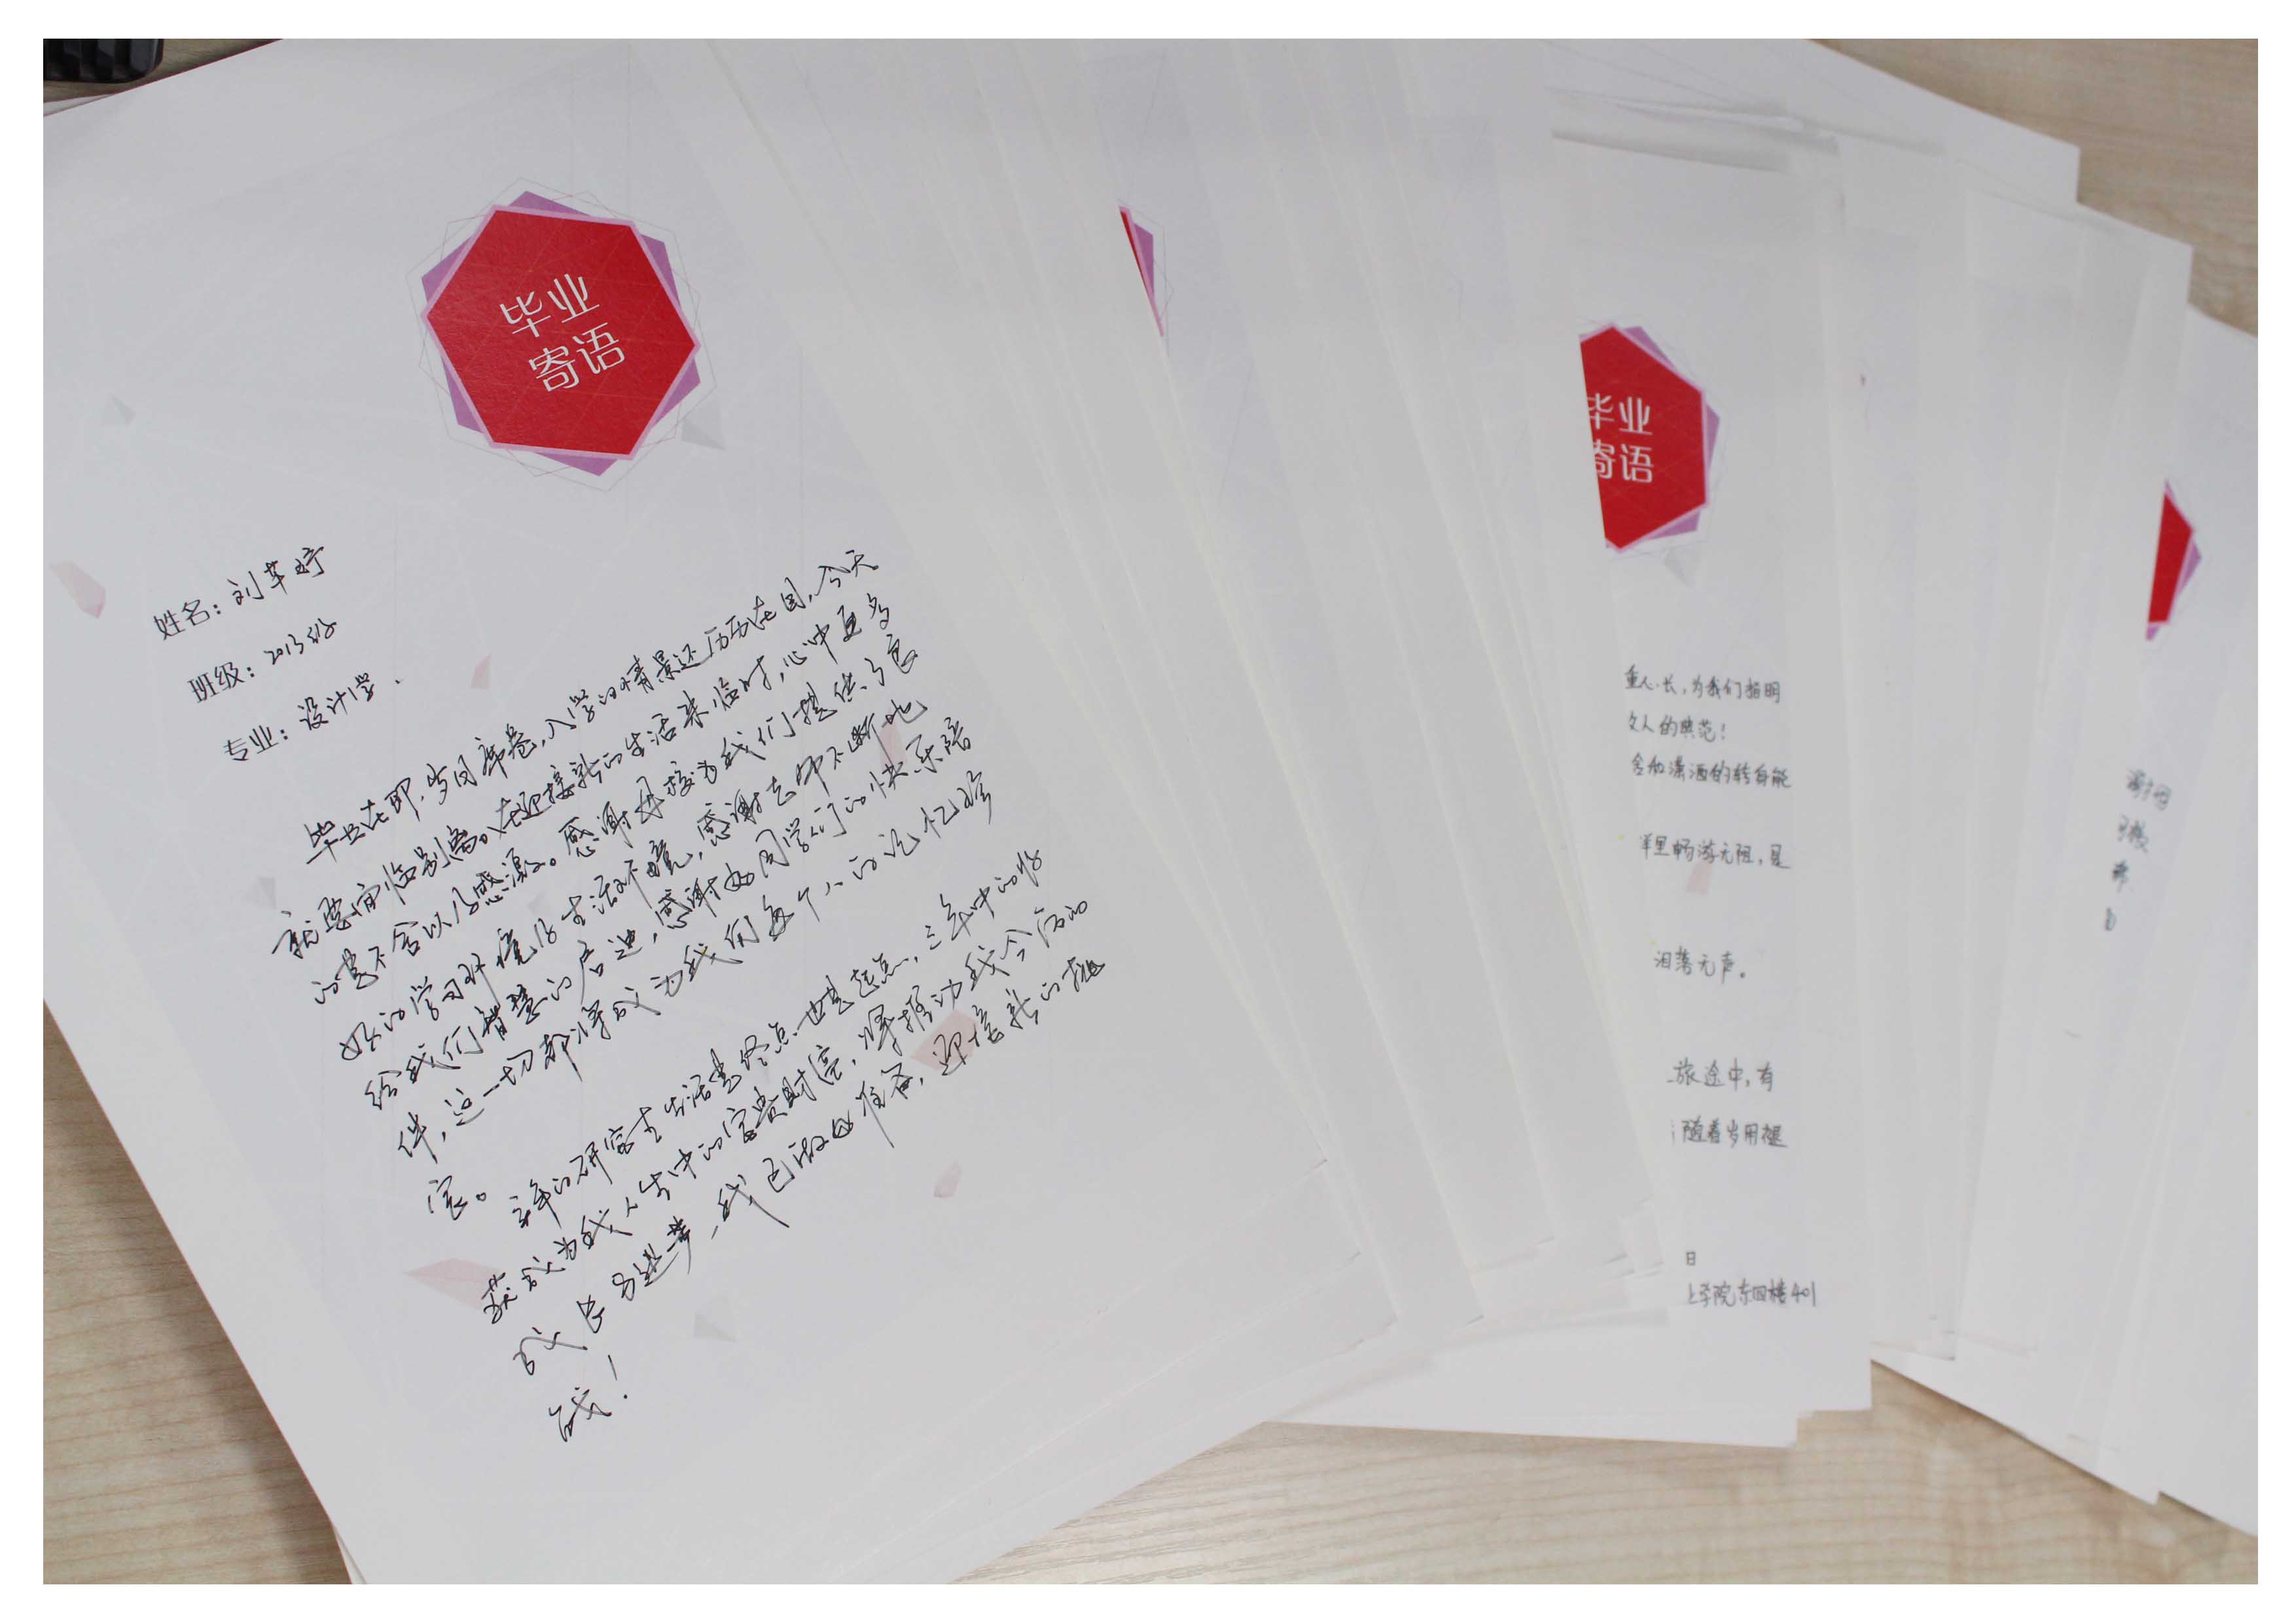 毕业
寄语
姓名：刘苹婷
班级：2013级
专业：设计学.
毕业在即，岁月席卷，入学的情景还历历在目，今天
就要面临别离。在迎接新的生活来临时，心中更多
的是不舍以及感激。感谢母校为我们提供了良
好的学习环境及生活环境，感谢老师不断地
给我们智慧的启迪，感谢好同学们的快乐陪
伴，这一切都将成为我们每个人的记忆珍
宝。
的研究生生活是终点，也是起点，三年中的收
获成为我人生中的宝贵财富，将推动我今后的
成长与进步，我已做好准备，迎接新的挑
战！
毕业
寄语
重心长，为我们指明
文人的典范！
舍和潇洒的转身能
洋里畅游无阻，是
泪落无声。
旅途中，有
随着岁月褪
日
学院东四楼401